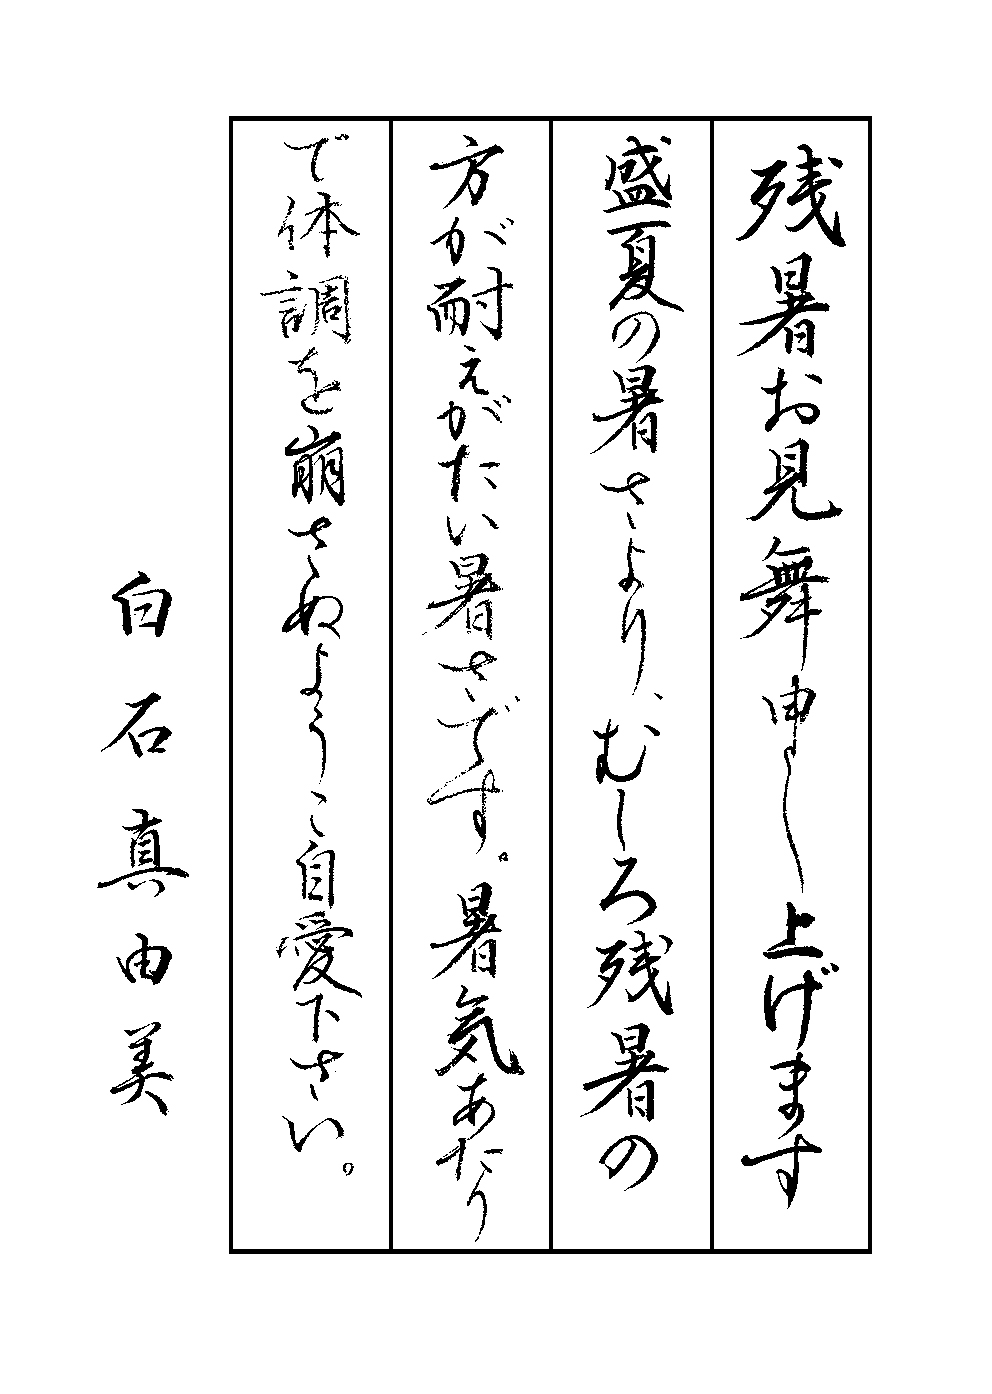 残暑お見舞申し上げます
盛夏の暑さより、むしろ残暑の
方が耐えがたい暑さです。暑気あたり
で体調を崩さぬようご自愛下さい。
白石真由美